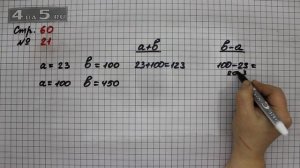 4 на 5 .ru
Стр. 60
№ 21
a+b
b-a
a = 23 b = 100 23+100=123 100-23=
a = 100 b = 450